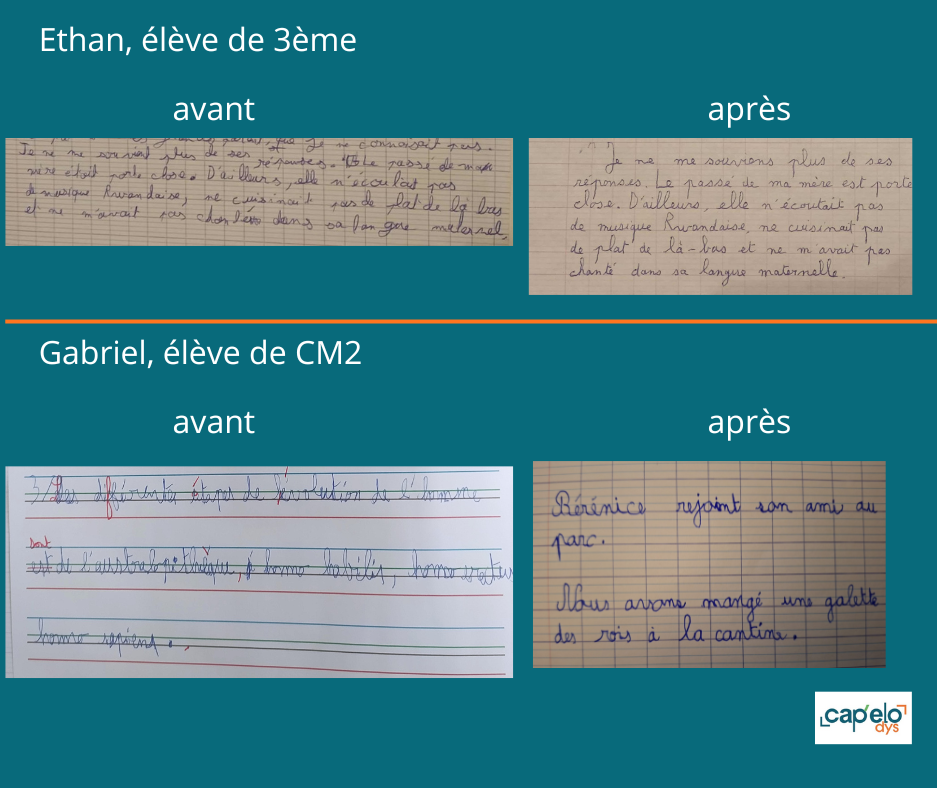 Ethan, élève de 3ème
avant
après
je ne connaissait pas.
Je ne me souvient plus de ses réponses. Le passé de ma
mère était porte close. D'ailleurs, elle n'écoutait pas
de musique Rwandaise, ne cuisinait pas de plat de là bas
et ne m'avait pas chanter dans sa langue maternel,
Je ne me souviens plus de ses
réponses. Le passé de ma mère est porte
close. D'ailleurs, elle n'écoutait pas
de musique Rwandaise, ne cuisinait pas
de plat de là-bas et ne m'avait pas
chanté dans sa langue maternelle.
Gabriel, élève de CM2
avant
après
3/ Les différentes étapes de l'évolution de l'homme
Dont
est de l'australopithèque, homo habilis, homo erectus
homo sapiens.
Bérénice rejoint son ami au
parc.
Nous avons mangé une galette
des rois à la cantine.
cap'elo
dys